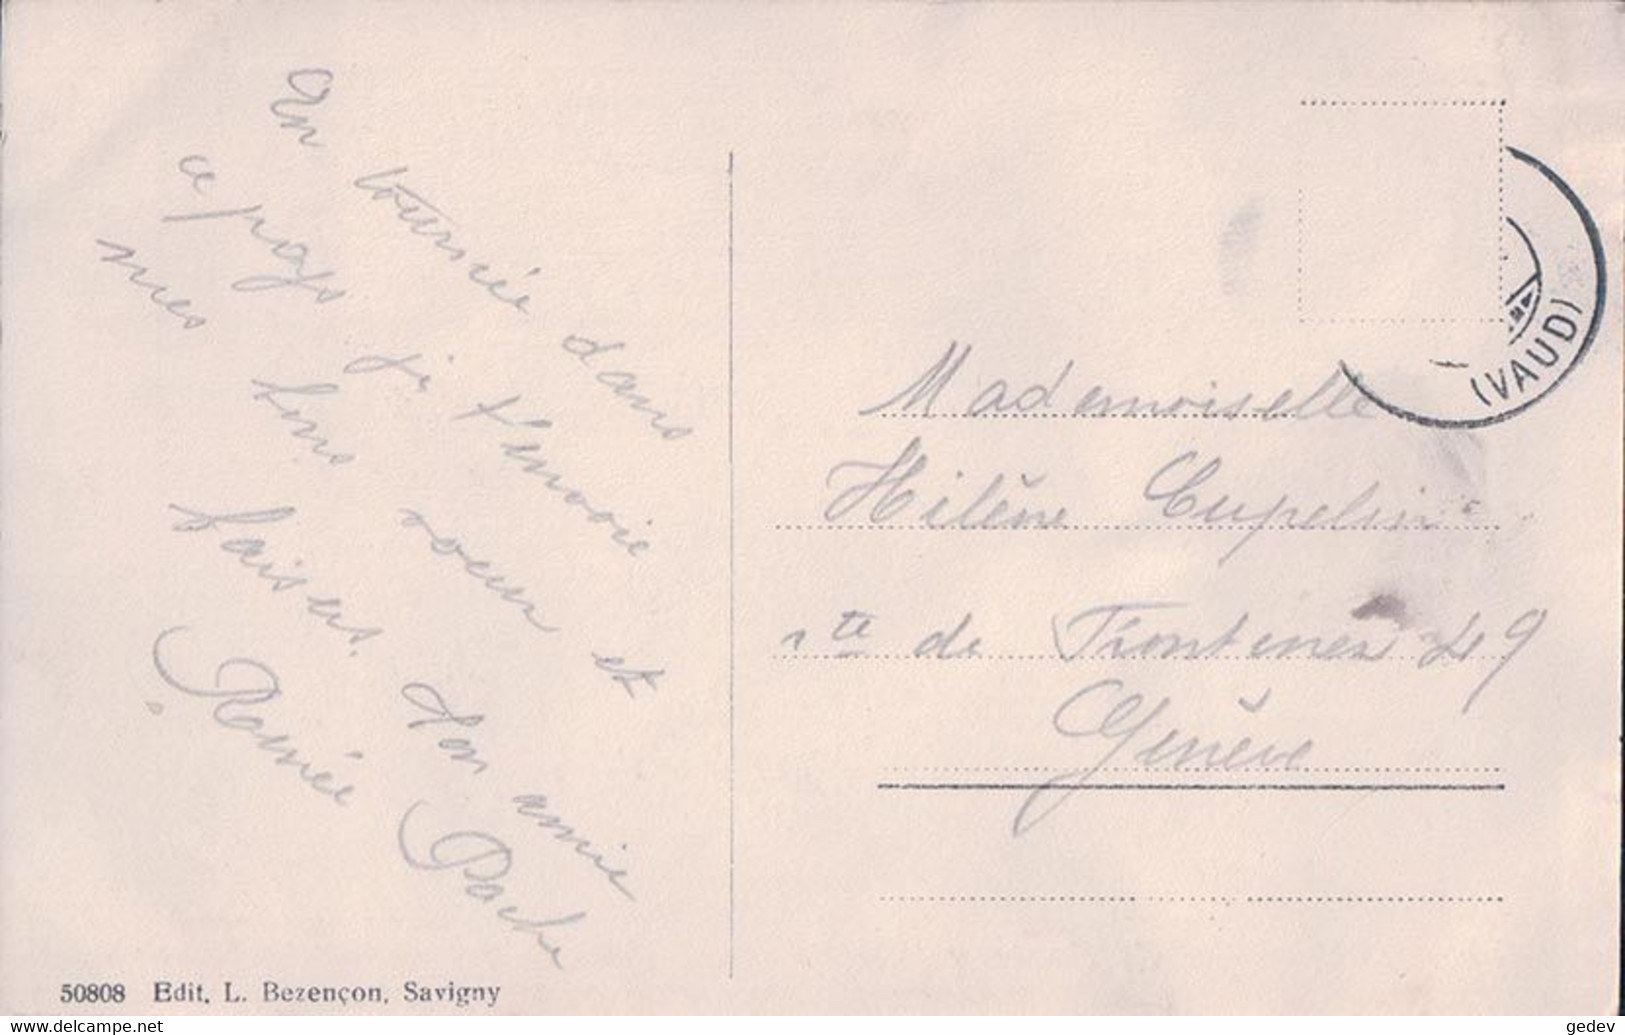 En tournée dans
ce pays je t'envoie
mes bons voeux et
baisers. Ton amie
Renée Pache
(VAUD)
Mademoiselle
Hélène Cupelin
rte de Frontenex 49
Genève
50808 Edit. L. Bezençon, Savigny
www.delcampe.net
gedev